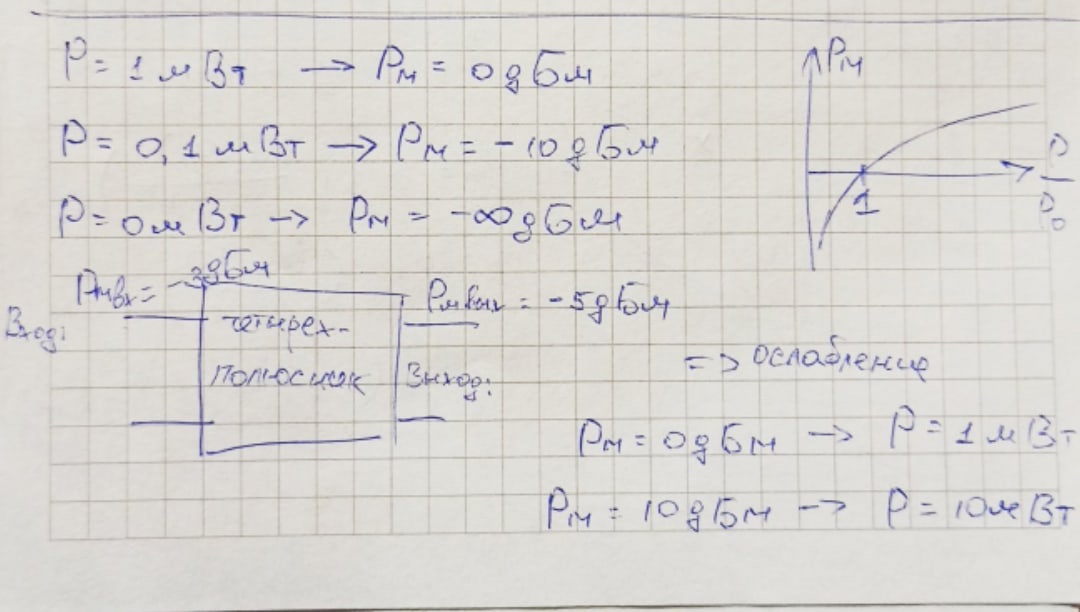 P = 1 мВт → Pм = 0 дБм
P = 0,1 мВт → Pм = -10 дБм
P = 0 мВт → Pм = -∞ дБм
Pм
1
P
P₀
Pм вх = -3 дБм
Вход:
четырех-
полюсник
Pм вых = -5 дБм
Выход:
=> ослабление
Pм = 0 дБм → P = 1 мВт
Pм = 10 дБм → P = 10 мВт